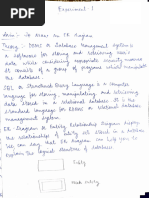 Experiment - 1
Aim :- To draw an ER Diagram
Theory :- DBMS or Database Management System is
a software for storing and retrieving users'
data while considering appropriate security measures.
It consists of a group of programs which manipulate
the database.
SQL or Structured Query Language is a computer
language for storing, manipulating and retrieving
data stored in a relational database. It is the
standard language for relational database system.
ER-Diagram or Entity Relationship Diagram displays
the relationship of Entity set stored in a database.
We can say that ER Diagram help you to
explain the logical structure of database.
Entity
Weak Entity